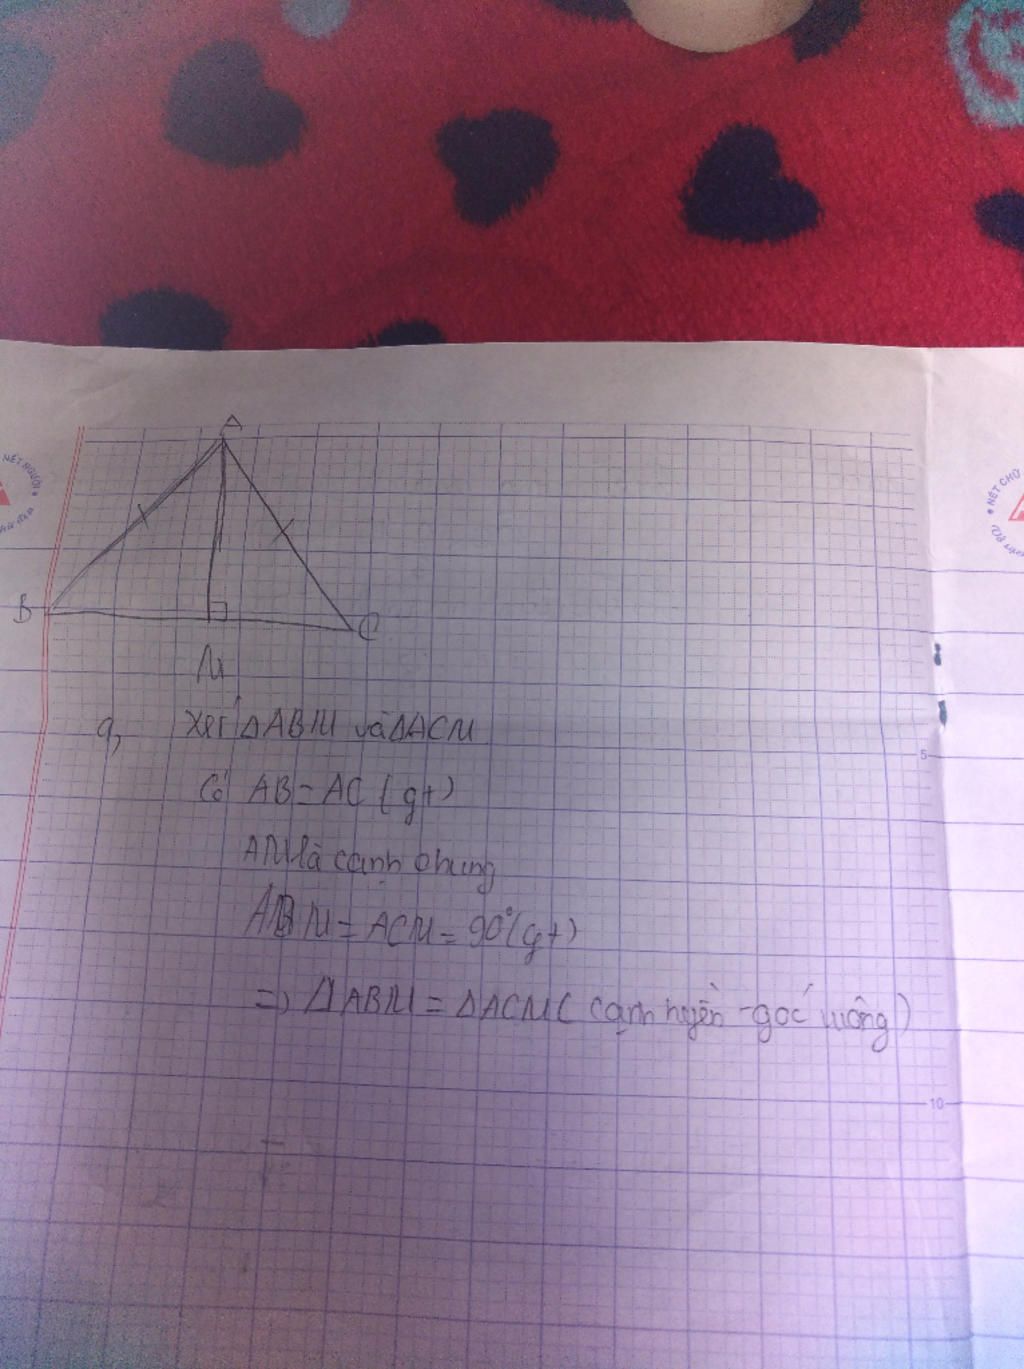 A
B
C
M
NÉT NGƯỜI
NÉT CHỮ
a, Xét ΔABM và ΔACM
Có AB = AC (gt)
AM là cạnh chung
ABM = ACM = 90° (gt)
=> ΔABM = ΔACM ( cạnh huyền - góc vuông)
5
10